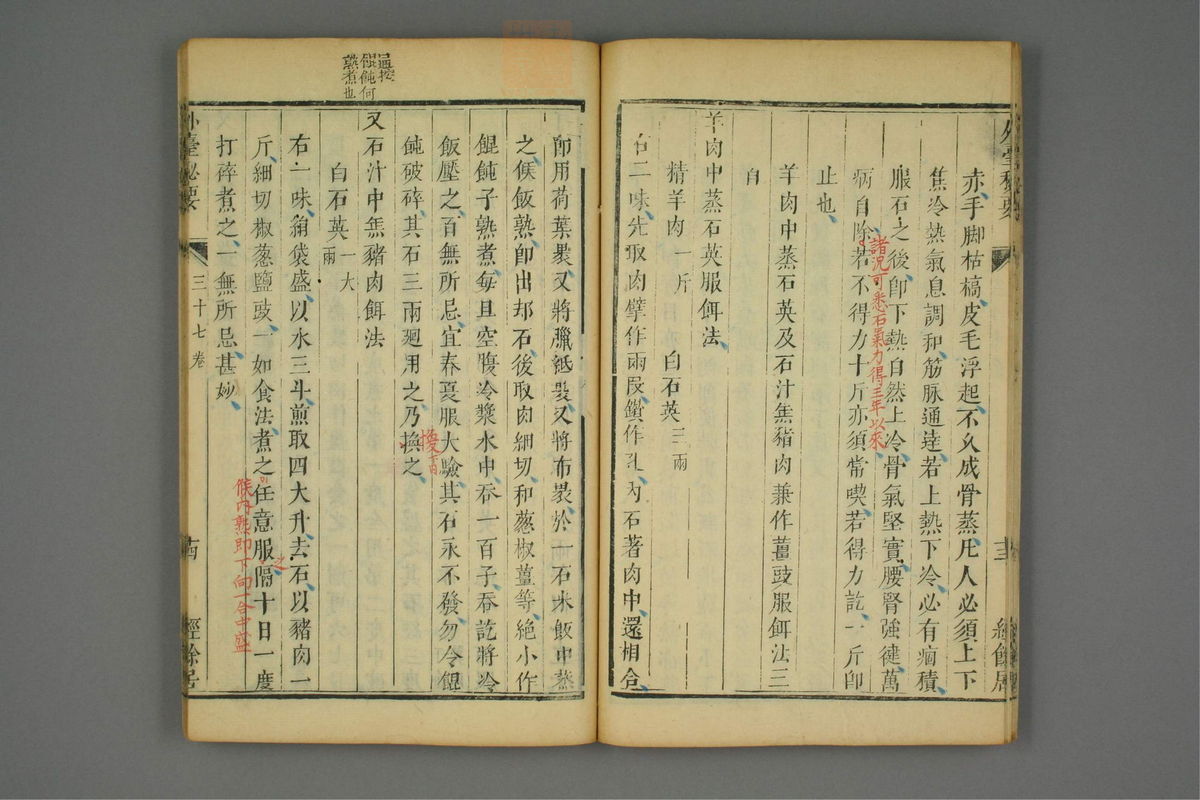 赤手脚枯槁皮毛浮起不久成骨蒸凡人必須上下
焦冷熱氣息調和筋脉通達若上熱下冷必有痼積
服石之後卽下熱自然上冷骨氣堅實腰腎強健萬
病自除若不得力十斤亦須常喫若得力訖一斤卽
諸況可悉石氣力得三年以來
止也
羊肉中蒸石英及石汁焦豬肉兼作薑豉服餌法三
自
羊肉中蒸石英服餌法
精羊肉一斤 白石英三兩
右二味先取肉擘作兩叚鑽作孔內石著肉中還相合
外臺秘要
卽用荷葉裹又將臘紙裹又將布裹於兩石米飯中蒸
之候飯熟卽出却石後取肉細切和葱椒薑等絕小作
餛飩子熟煮每旦空腹冷漿水中吞一百子吞訖將冷
飯壓之百無所忌宜春夏服大驗其石永不發勿令餛
飩破碎其石三兩廻用之乃換之
又石汁中焦豬肉餌法
白石英一大兩
右一味絹袋盛以水三斗煎取四大升去石以豬肉一
斤細切椒葱鹽豉一如食法煮之任意服隔十日一度
候內熟卽下向一合中盛
打碎煮之一無所忌甚妙
外臺秘要
三十七卷
經餘居
餛飩何
熟煮也